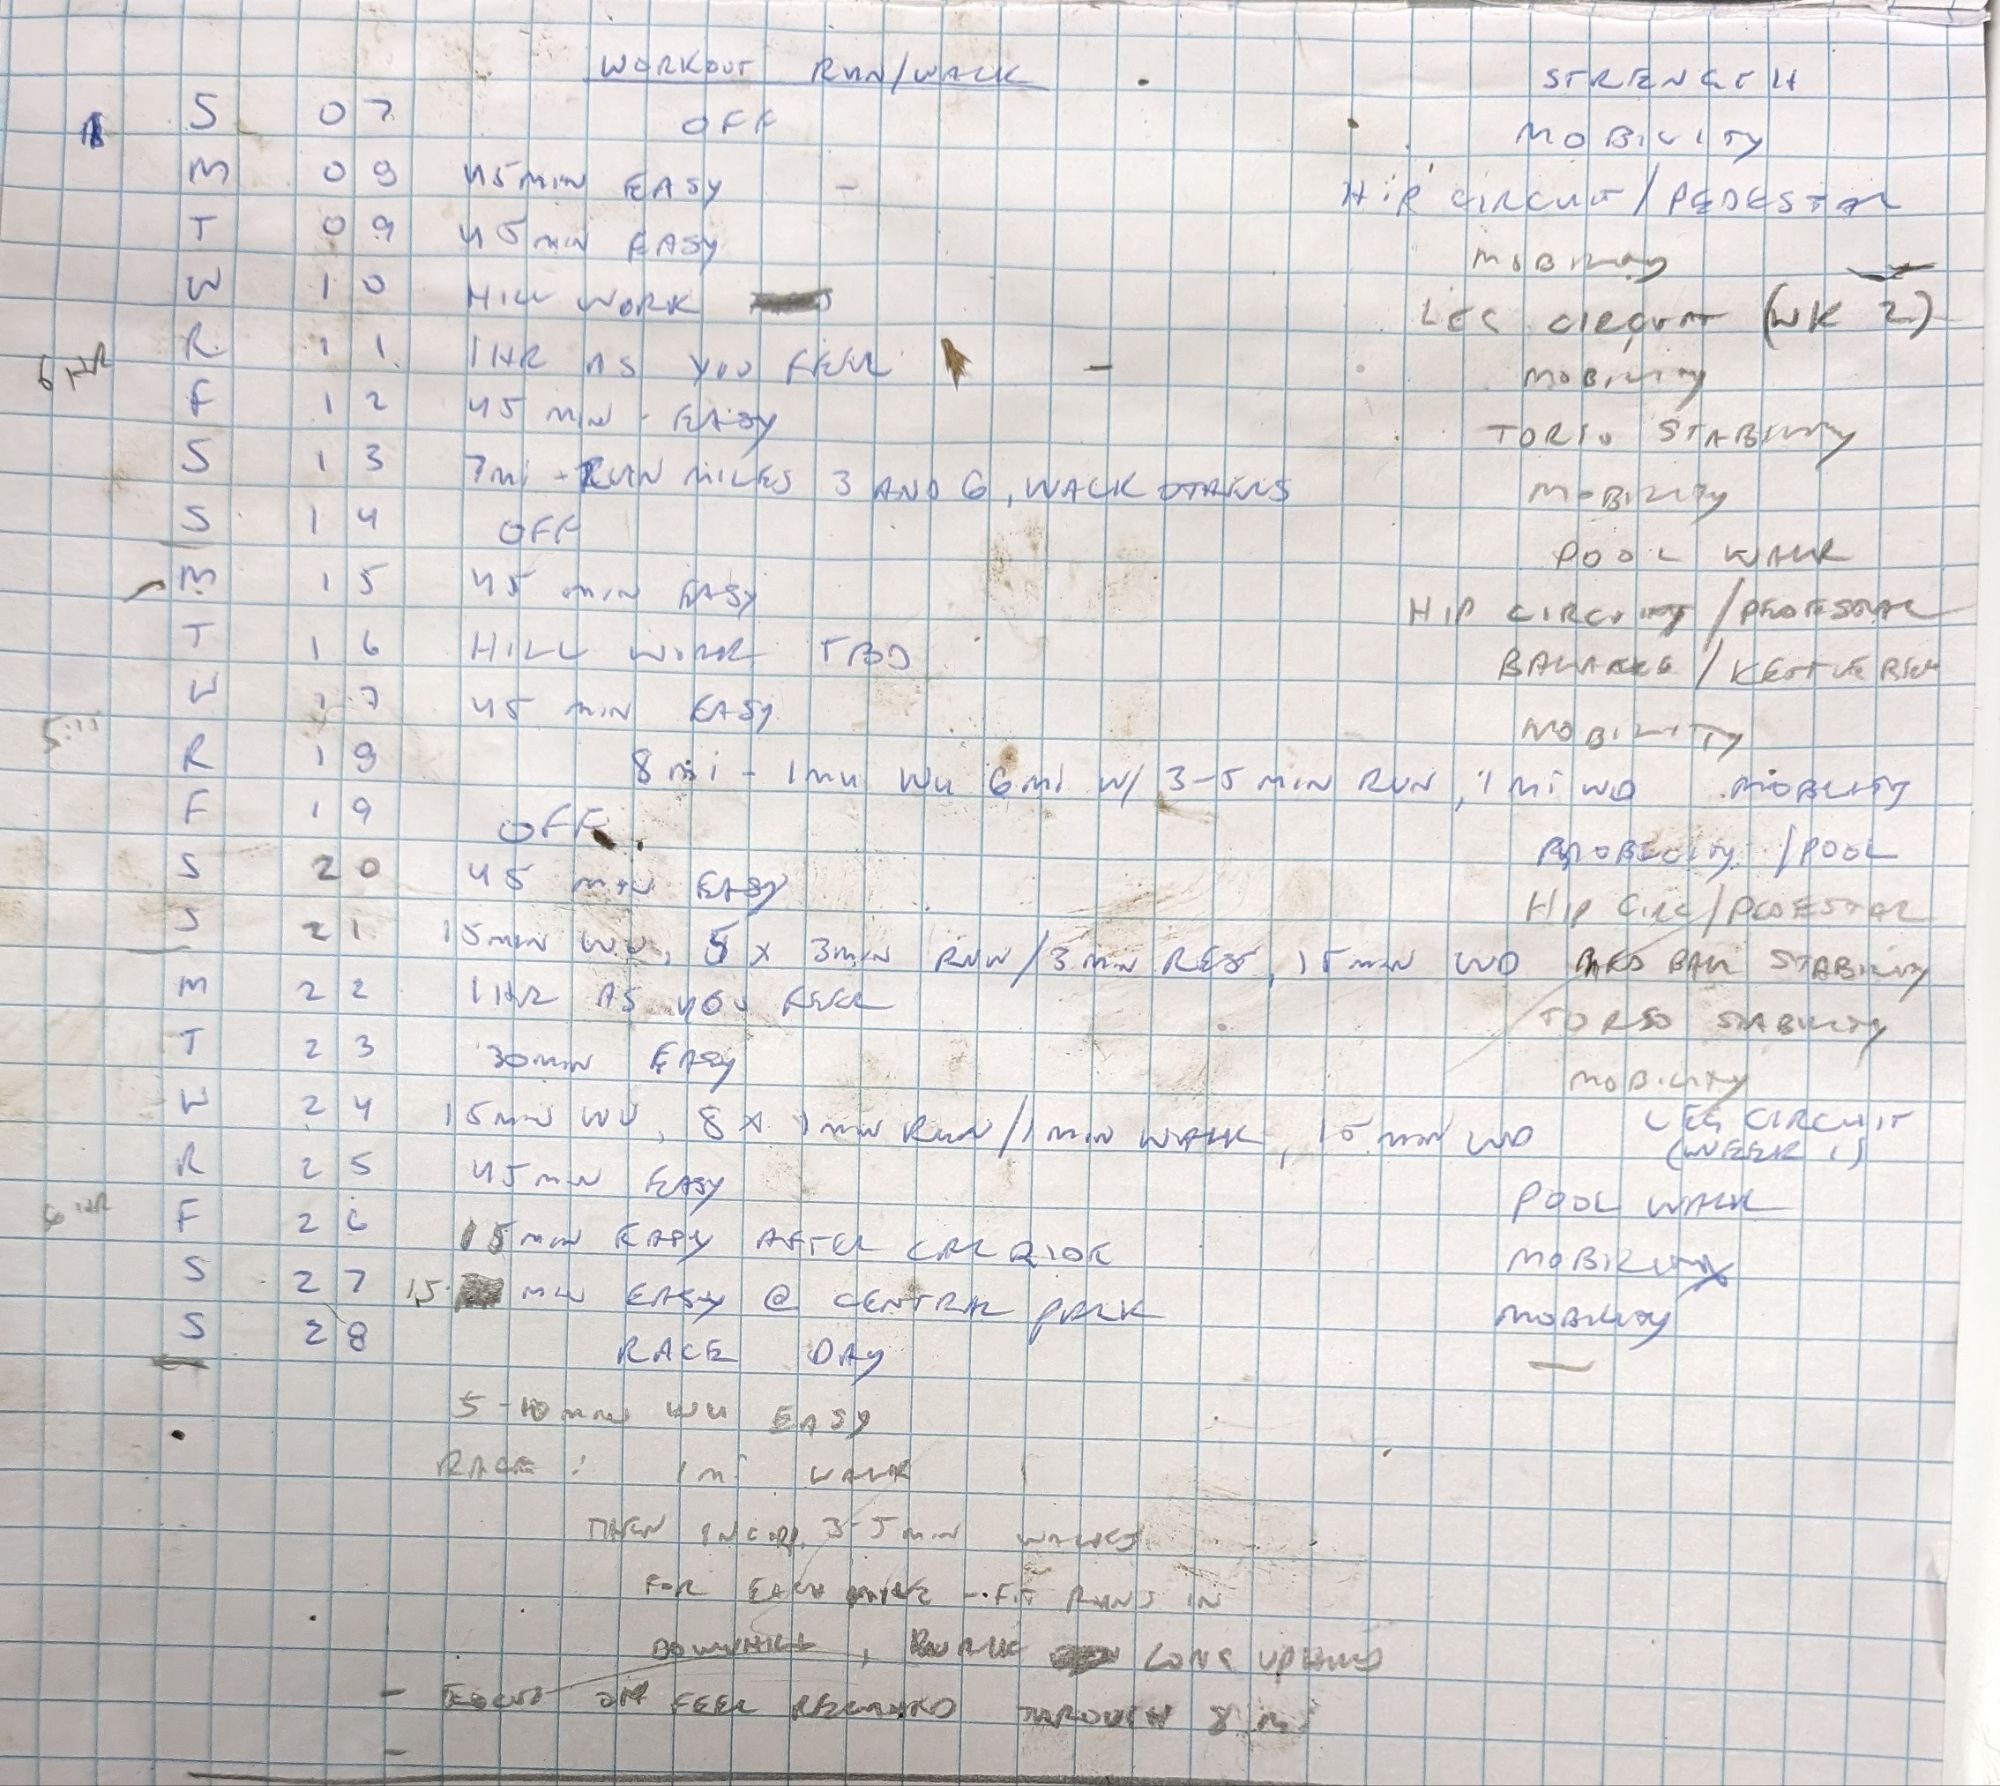 WORKOUT RUN/WALK STRENGTH
S 07 OFF MOBILITY
M 08 45 MIN EASY - HIP CIRCUIT / PEDESTAL
T 09 45 MIN EASY MOBILITY
W 10 HILL WORK LEG CIRCUIT (WK 2)
6 HR R 11 1 HR AS YOU FEEL - MOBILITY
F 12 45 MIN - EASY TORSO STABILITY
S 13 7 mi - RUN MILES 3 AND 6, WALK OTHERS MOBILITY
S 14 OFF POOL WALK
M 15 45 MIN EASY HIP CIRCUIT / PEDESTAL
T 16 HILL WORK TBD BALANCE / KETTLEBELL
W 17 45 MIN EASY MOBILITY
R 18 8 mi - 1 mi WU 6 mi W/ 3-5 MIN RUN, 1 MI WD MOBILITY
F 19 OFF MOBILITY / POOL
S 20 45 MIN EASY HIP CIRC / PEDESTAL
S 21 15 MIN WU, 5 X 3 MIN RUN / 3 MIN REST, 15 MIN WD MED BALL STABILITY
M 22 1 HR AS YOU FEEL TORSO STABILITY
T 23 30 MIN EASY MOBILITY
W 24 15 MIN WU, 8 X 1 MIN RUN / 1 MIN WALK, 15 MIN WD LEG CIRCUIT
(WEEK 1)
R 25 45 MIN EASY POOL WALK
6 HR F 26 15 MIN EASY AFTER CAR RIDE MOBILITY
S 27 15 MIN EASY @ CENTRAL PARK MOBILITY
S 28 RACE DAY —
5-10 MIN WU EASY
RACE: 1 mi WALK
THEN INCORP. 3-5 MIN WALKS
FOR EACH MILE - FIT RUNS IN
DOWNHILL, WALK LONG UPHILLS
- FOCUS ON FEEL RELAXED THROUGH 8 mi
-